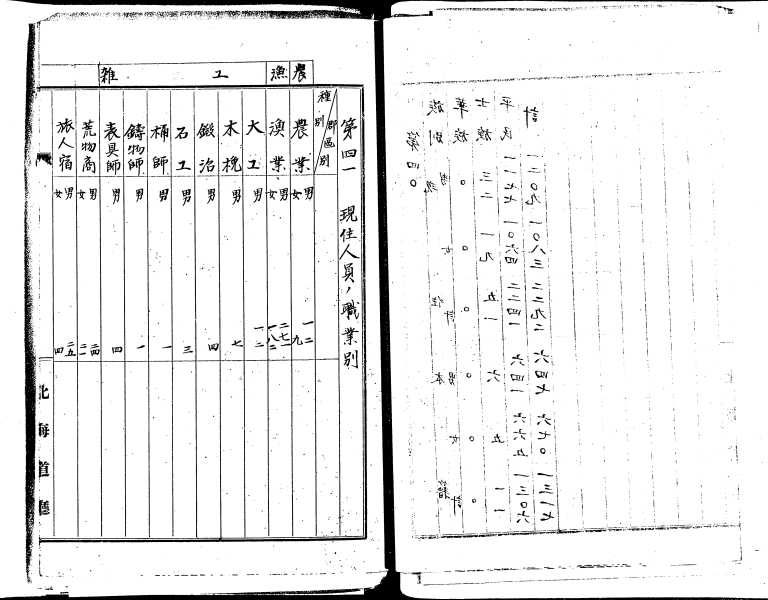 第四〇
族別 現住 男 女 計 本籍 男 女 計
華族 〇 〇 〇 〇 〇 〇
士族 三二 一九 五一 六 五 一一
平民 一一七七 一〇六四 二二四一 六四一 六六五 一三〇六
計 一二〇九 一〇八三 二二九二 六四七 六七〇 一三一七
第四一 現住人員ノ職業別
種別 郡區別
農
農業 男 一二
女 九
漁
漁業 男 二七一
女 一八二
工
大工 男 一二
木挽 男 七
鍛冶 男 四
石工 男 三
桶師 男 一
鋳物師 男 一
表具師 男 四
雜
荒物商 男 二四
女 二一
旅人宿 男 二五
女 四
北海道廳